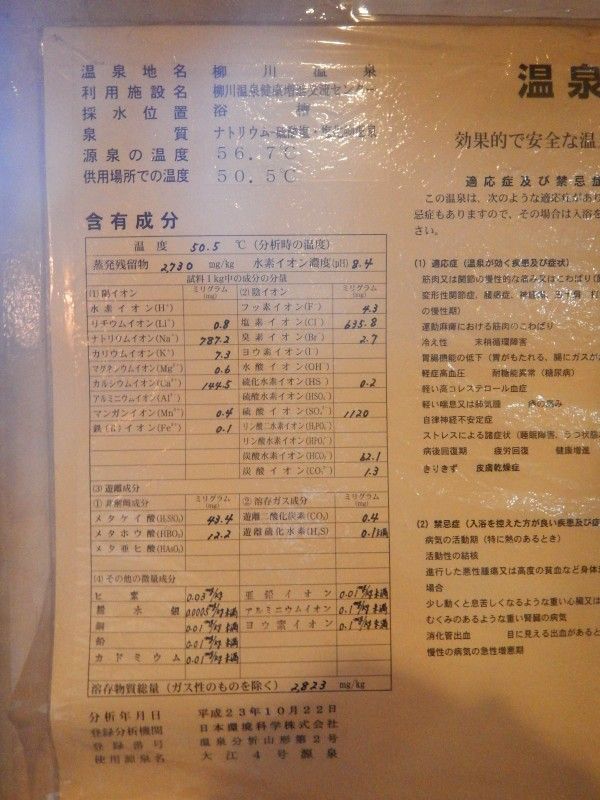 温泉地名 柳川温泉
利用施設名 柳川温泉健康増進交流センター
採水位置 浴槽
泉質 ナトリウム
源泉の温度 56.7℃
供用場所での温度 50.5℃
含有成分
温度 50.5 ℃(分析時の温度)
蒸発残留物 2,730 mg/kg 水素イオン濃度(pH) 8.4
試料1kg中の成分の分量
(1)陽イオン ミリグラム(mg) (2)陰イオン ミリグラム(mg)
水素イオン(H⁺) フッ素イオン(F⁻) 4.3
リチウムイオン(Li⁺) 0.8 塩素イオン(Cl⁻) 635.8
ナトリウムイオン(Na⁺) 787.2 臭素イオン(Br⁻) 2.7
カリウムイオン(K⁺) 7.3 ヨウ素イオン(I⁻)
マグネシウムイオン(Mg²⁺) 0.6 水酸イオン(OH⁻)
カルシウムイオン(Ca²⁺) 144.5 硫化水素イオン(HS⁻) 0.2
アルミニウムイオン(Al³⁺) 硫酸水素イオン(HSO₄⁻)
マンガンイオン(Mn²⁺) 0.4 硫酸イオン(SO₄²⁻) 1120
鉄(Ⅱ)イオン(Fe²⁺) 0.1 リン酸二水素イオン(H₂PO₄⁻)
リン酸水素イオン(HPO₄²⁻)
炭酸水素イオン(HCO₃⁻) 62.1
炭酸イオン(CO₃²⁻) 1.3
(3)遊離成分
①非解離成分 ミリグラム(mg) ②溶存ガス成分 ミリグラム(mg)
メタケイ酸(H₂SiO₃) 43.4 遊離二酸化炭素(CO₂) 0.4
メタホウ酸(HBO₂) 12.2 遊離硫化水素(H₂S) 0.1未満
メタ亜ヒ酸(HAsO₂)
(4)その他の微量成分
ヒ素 0.03mg/kg 亜鉛イオン 0.01mg/kg未満
総水銀 0.0005mg/kg未満 アルミニウムイオン 0.1mg/kg未満
銅 0.01mg/kg未満 ヨウ素イオン 0.1mg/kg未満
鉛 0.01mg/kg未満
カドミウム 0.01mg/kg未満
溶存物質総量(ガス性のものを除く) 2,823 mg/kg
分析年月日 平成23年10月22日
登録分析機関 日本環境科学株式会社
登録番号 温泉分析山形第2号
使用源泉名 大江4号源泉
温泉
効果的で安全な温
適応症及び禁忌症
この温泉は、次のような適応症があり
忌症もありますので、その場合は入浴を
さい。
(1)適応症(温泉が効く疾患及び症状)
筋肉又は関節の慢性的な痛み又はこわばり
変形性関節症、腰痛症、神経痛、五十肩
の慢性期)
運動麻痺における筋肉のこわばり
冷え性 末梢循環障害
胃腸機能の低下(胃がもたれる、腸にガスが
軽症高血圧 耐糖能異常(糖尿病)
軽い高コレステロール血症
軽い喘息又は肺気腫 痔の痛み
自律神経不安定症
ストレスによる諸症状(睡眠障害、うつ状態
病後回復期 疲労回復 健康増進
きりきず 皮膚乾燥症
(2)禁忌症(入浴を控えた方が良い疾患及び症
病気の活動期(特に熱のあるとき)
活動性の結核
進行した悪性腫瘍又は高度の貧血など身体
場合
少し動くと息苦しくなるような重い心臓又は
むくみのあるような重い腎臓の病気
消化管出血 目に見える出血があると
慢性の病気の急性増悪期